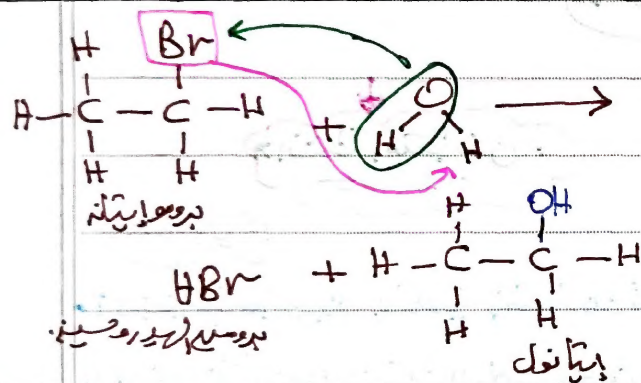 H Br
H—C—C—H + H O H ⟶
H H
بروموإيثانه
H OH
HBr + H—C—C—H
H H
بروميد الهيدروجين
إيثانول